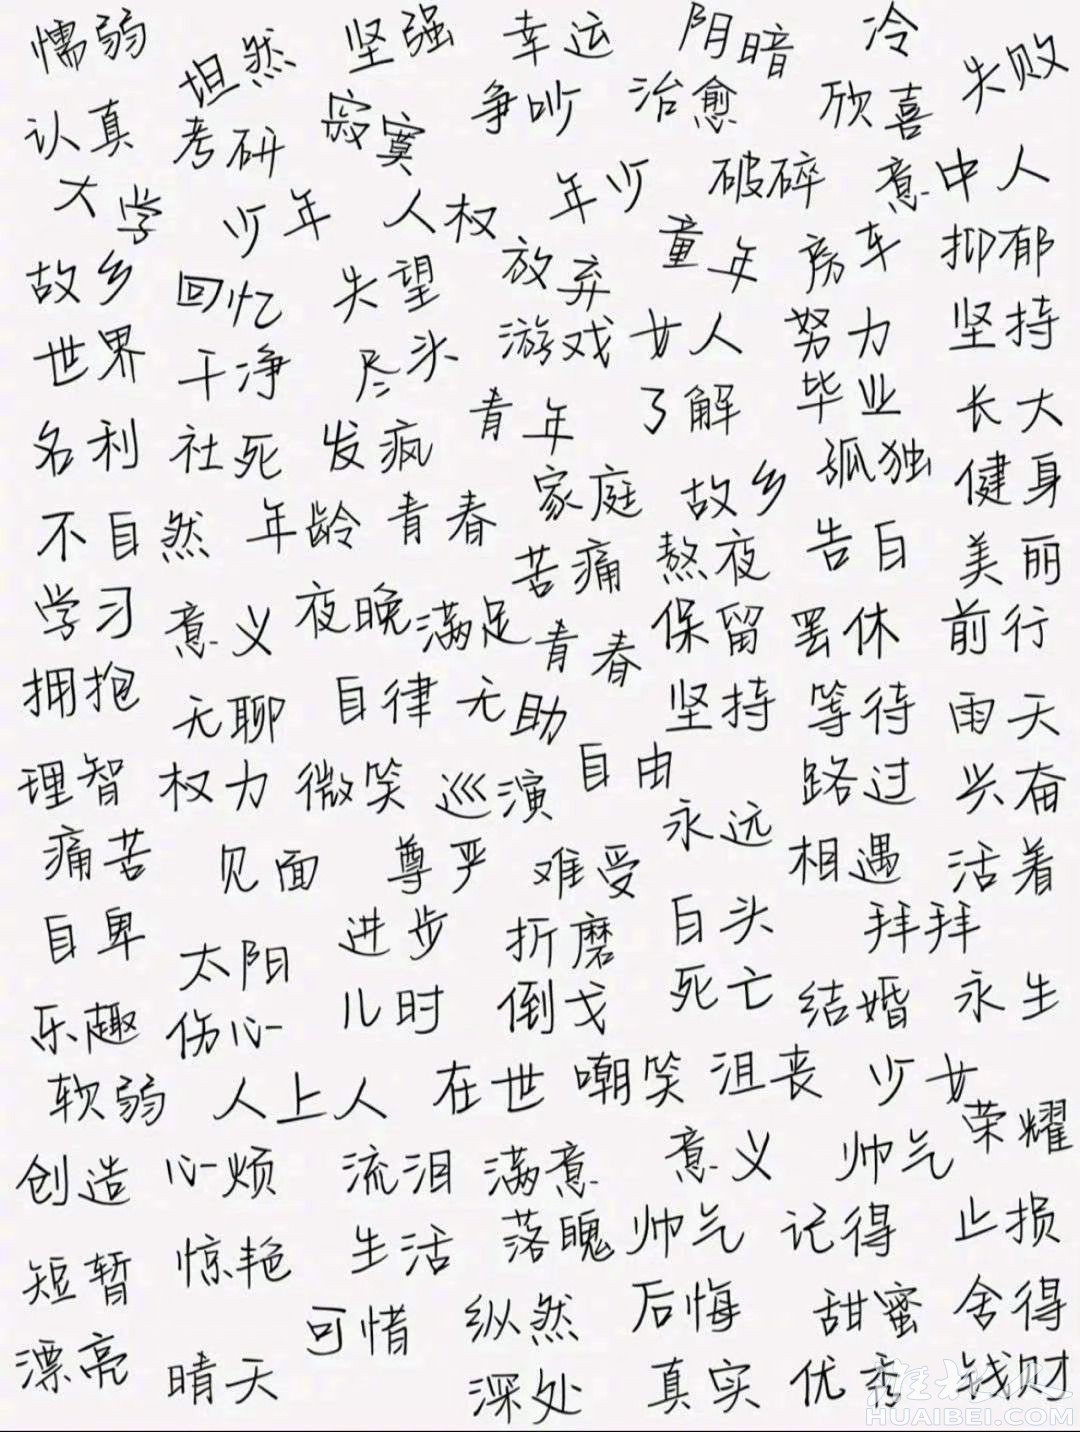 懦弱 坦然 坚强 幸运 阴暗 冷 失败
认真 考研 寂寞 争吵 治愈 欣喜
大学 少年 人权 年少 破碎 意中人
故乡 回忆 失望 放弃 童年 房车 抑郁
世界 干净 尽头 游戏 女人 努力 坚持
名利 社死 发疯 青年 了解 毕业 长大
不自然 年龄 青春 家庭 故乡 孤独 健身
学习 意义 夜晚 满足 苦痛 熬夜 告白 美丽
拥抱 无聊 自律 无助 青春 保留 罢休 前行
理智 权力 微笑 巡演 自由 坚持 等待 雨天
痛苦 见面 尊严 难受 永远 路过 兴奋
自卑 太阳 进步 折磨 白头 相遇 活着
乐趣 伤心 儿时 倒戈 死亡 拜拜
软弱 人上人 在世 嘲笑 沮丧 少女 结婚 永生
创造 心烦 流泪 满意 意义 帅气 荣耀
短暂 惊艳 生活 落魄 帅气 记得 止损
漂亮 晴天 可惜 纵然 后悔 甜蜜 舍得
深处 真实 优秀 钱财
HUAIBEI.COM